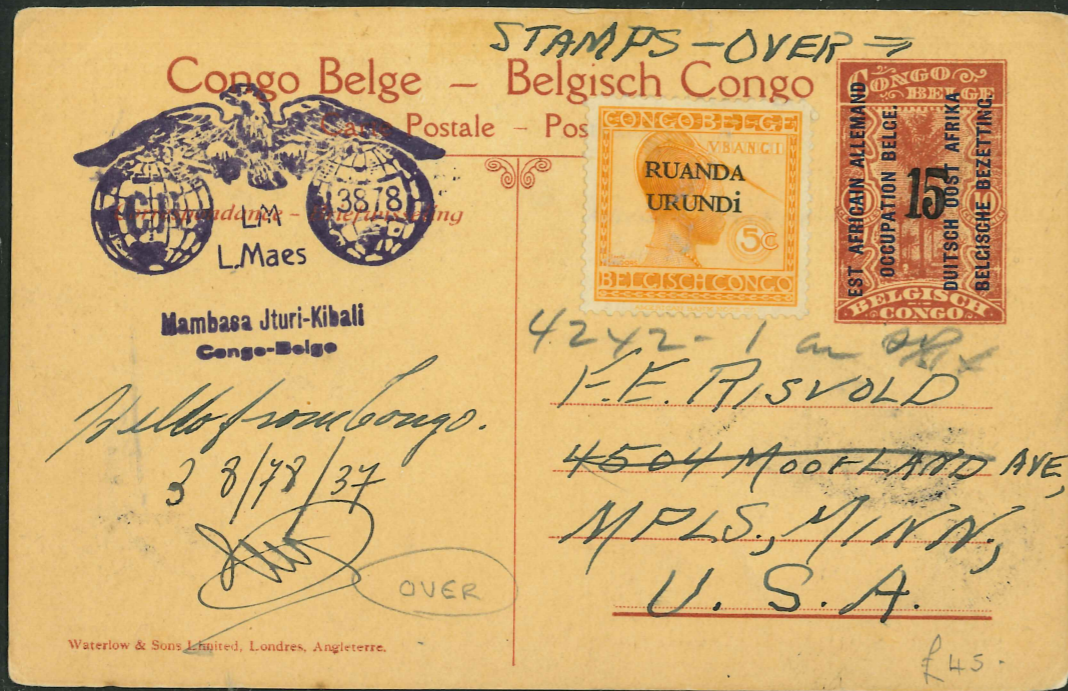 STAMPS - OVER
Congo Belge — Belgisch Congo
Carte Postale – Pos
Correspondance – Briefwisseling
CDL
13878
LM
L.Maes
Mambasa Jturi-Kibali
Congo-Belge
Hello from Congo.
3 8/78/37
OVER
Waterlow & Sons Limited, Londres, Angleterre.
CONGO BELGE
UBANGI
RUANDA
URUNDi
5c
BELGISCH CONGO
CONGO
BELGE
EST AFRICAIN ALLEMAND
OCCUPATION BELGE.
15
DUITSCH OOST AFRIKA
BELGISCHE BEZETTING.
BELGISCH
CONGO.
4242 - 1
F.E. RISVOLD
4504 MOORLAND AVE,
MPLS., MINN,
U. S. A.
£45-